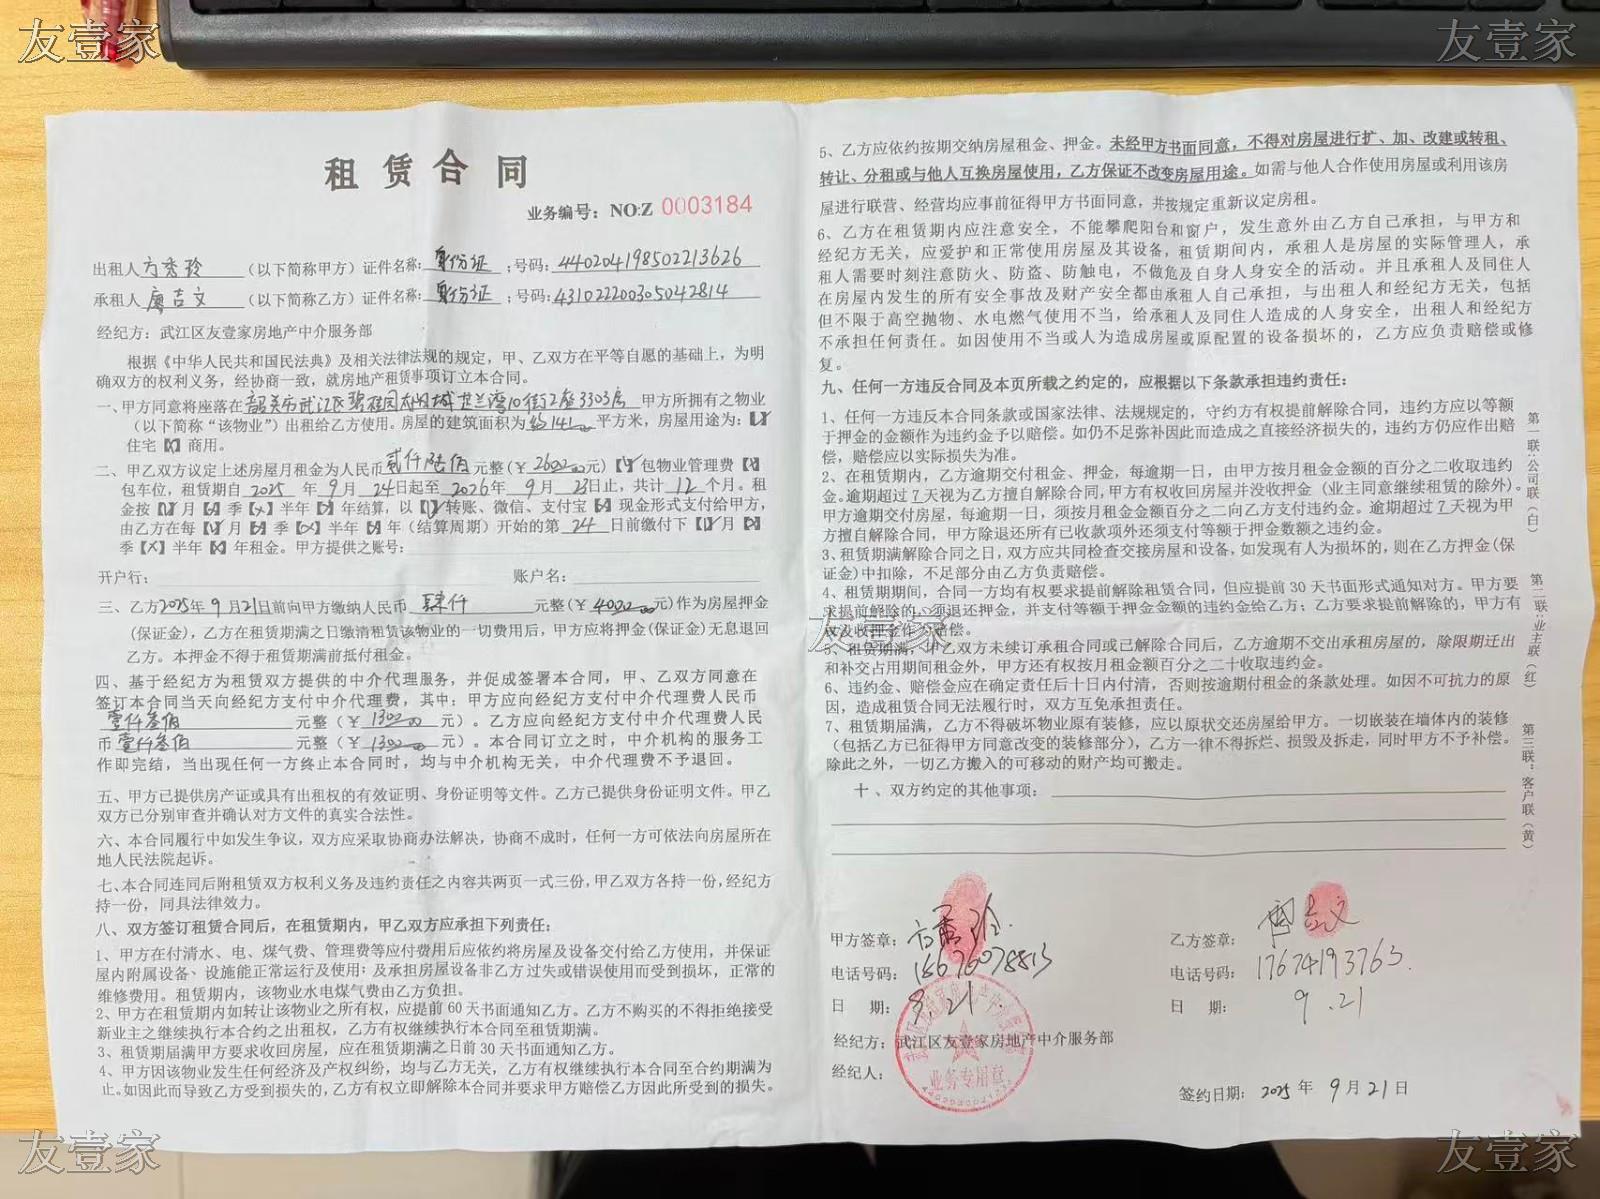 友壹家
友壹家
租赁合同
业务编号：NO:Z 0003184
出租人方秀玲（以下简称甲方）证件名称：身份证；号码：440204198502213626
承租人唐吉文（以下简称乙方）证件名称：身份证；号码：431022200305042814
经纪方：武江区友壹家房地产中介服务部
根据《中华人民共和国民法典》及相关法律法规的规定，甲、乙双方在平等自愿的基础上，为明
确双方的权利义务，经协商一致，就房地产租赁事项订立本合同。
一、甲方同意将座落在韶关市武江区碧桂园太阳城芷兰湾10街2座3303房 甲方所拥有之物业
（以下简称“该物业”）出租给乙方使用。房屋的建筑面积为约141平方米，房屋用途为：【√】
住宅【×】商用。
二、甲乙双方议定上述房屋月租金为人民币贰仟陆佰元整(￥2600.00元)【√】包物业管理费【×】
包车位，租赁期自2025年9月24日起至2026年9月23日止，共计12个月。租
金按【√】月【×】季【×】半年【×】年结算，以【√】转账、微信、支付宝【×】现金形式支付给甲方，
由乙方在每【√】月【×】季【×】半年【×】年（结算周期）开始的第24日前缴付下【√】月【×】
季【×】半年【×】年租金。甲方提供之账号：
开户行： 账户名：
三、乙方2025年9月21日前向甲方缴纳人民币 肆仟 元整(￥4000.00元)作为房屋押金
(保证金)，乙方在租赁期满之日缴清租赁该物业的一切费用后，甲方应将押金(保证金)无息退回
乙方。本押金不得于租赁期满前抵付租金。
四、基于经纪方为租赁双方提供的中介代理服务，并促成签署本合同，甲、乙双方同意在
签订本合同当天向经纪方支付中介代理费，其中：甲方应向经纪方支付中介代理费人民币
壹仟叁佰 元整（￥1300.00元）。乙方应向经纪方支付中介代理费人民
币壹仟叁佰 元整（￥1300.00元）。本合同订立之时，中介机构的服务工
作即完结，当出现任何一方终止本合同时，均与中介机构无关，中介代理费不予退回。
五、甲方已提供房产证或具有出租权的有效证明、身份证明等文件。乙方已提供身份证明文件。甲乙
双方已分别审查并确认对方文件的真实合法性。
六、本合同履行中如发生争议，双方应采取协商办法解决，协商不成时，任何一方可依法向房屋所在
地人民法院起诉。
七、本合同连同后附租赁双方权利义务及违约责任之内容共两页一式三份，甲乙双方各持一份，经纪方
持一份，同具法律效力。
八、双方签订租赁合同后，在租赁期内，甲乙双方应承担下列责任：
1、甲方在付清水、电、煤气费、管理费等应付费用后应依约将房屋及设备交付给乙方使用，并保证
屋内附属设备、设施能正常运行及使用；及承担房屋设备非乙方过失或错误使用而受到损坏，正常的
维修费用。租赁期内，该物业水电煤气费由乙方负担。
2、甲方在租赁期内如转让该物业之所有权，应提前60天书面通知乙方。乙方不购买的不得拒绝接受
新业主之继续执行本合约之出租权，乙方有权继续执行本合同至租赁期满。
3、租赁期届满甲方要求收回房屋，应在租赁期满之日前30天书面通知乙方。
4、甲方因该物业发生任何经济及产权纠纷，均与乙方无关，乙方有权继续执行本合同至合约期满为
止。如因此而导致乙方受到损失的，乙方有权立即解除本合同并要求甲方赔偿乙方因此所受到的损失。
5、乙方应依约按期交纳房屋租金、押金。未经甲方书面同意，不得对房屋进行扩、加、改建或转租、
转让、分租或与他人互换房屋使用，乙方保证不改变房屋用途。如需与他人合作使用房屋或利用该房
屋进行联营、经营均应事前征得甲方书面同意，并按规定重新议定房租。
6、乙方在租赁期内应注意安全，不能攀爬阳台和窗户，发生意外由乙方自己承担，与甲方和
经纪方无关，应爱护和正常使用房屋及其设备，租赁期间内，承租人是房屋的实际管理人，承
租人需要时刻注意防火、防盗、防触电，不做危及自身人身安全的活动。并且承租人及同住人
在房屋内发生的所有安全事故及财产安全都由承租人自己承担，与出租人和经纪方无关，包括
但不限于高空抛物、水电燃气使用不当，给承租人及同住人造成的人身安全，出租人和经纪方
不承担任何责任。如因使用不当或人为造成房屋或原配置的设备损坏的，乙方应负责赔偿或修
复。
九、任何一方违反合同及本页所载之约定的，应根据以下条款承担违约责任：
1、任何一方违反本合同条款或国家法律、法规规定的，守约方有权提前解除合同，违约方应以等额
于押金的金额作为违约金予以赔偿。如仍不足弥补因此而造成之直接经济损失的，违约方仍应作出赔
偿，赔偿应以实际损失为准。
2、在租赁期内，乙方逾期交付租金、押金，每逾期一日，由甲方按月租金金额的百分之二收取违约
金。逾期超过7天视为乙方擅自解除合同，甲方有权收回房屋并没收押金（业主同意继续租赁的除外）。
甲方逾期交付房屋，每逾期一日，须按月租金金额百分之二向乙方支付违约金。逾期超过7天视为甲
方擅自解除合同，甲方除退还所有已收款项外还须支付等额于押金数额之违约金。
3、租赁期满解除合同之日，双方应共同检查交接房屋和设备，如发现有人为损坏的，则在乙方押金(保
证金)中扣除，不足部分由乙方负责赔偿。
4、租赁期期间，合同一方均有权要求提前解除租赁合同，但应提前30天书面形式通知对方。甲方要
求提前解除的，须退还押金，并支付等额于押金金额的违约金给乙方；乙方要求提前解除的，甲方有
权没收押金作为赔偿。
友壹家
5、租赁期满，甲乙双方未续订承租合同或已解除合同后，乙方逾期不交出承租房屋的，除限期迁出
和补交占用期间租金外，甲方还有权按月租金额百分之二十收取违约金。
6、违约金、赔偿金应在确定责任后十日内付清，否则按逾期付租金的条款处理。如因不可抗力的原
因，造成租赁合同无法履行时，双方互免承担责任。
7、租赁期届满，乙方不得破坏物业原有装修，应以原状交还房屋给甲方。一切嵌装在墙体内的装修
（包括乙方已征得甲方同意改变的装修部分），乙方一律不得拆烂、损毁及拆走，同时甲方不予补偿。
除此之外，一切乙方搬入的可移动的财产均可搬走。
十、双方约定的其他事项：
第一联：公司联（白）
第二联：业主联（红）
第三联：客户联（黄）
甲方签章：方秀玲
乙方签章：唐吉文
电话号码：18676078813
电话号码：17674193763
日 期：9.21
日 期：9.21
经纪方：武江区友壹家房地产中介服务部
经纪人：
业务专用章
签约日期：2025年9月21日
友壹家
友壹家